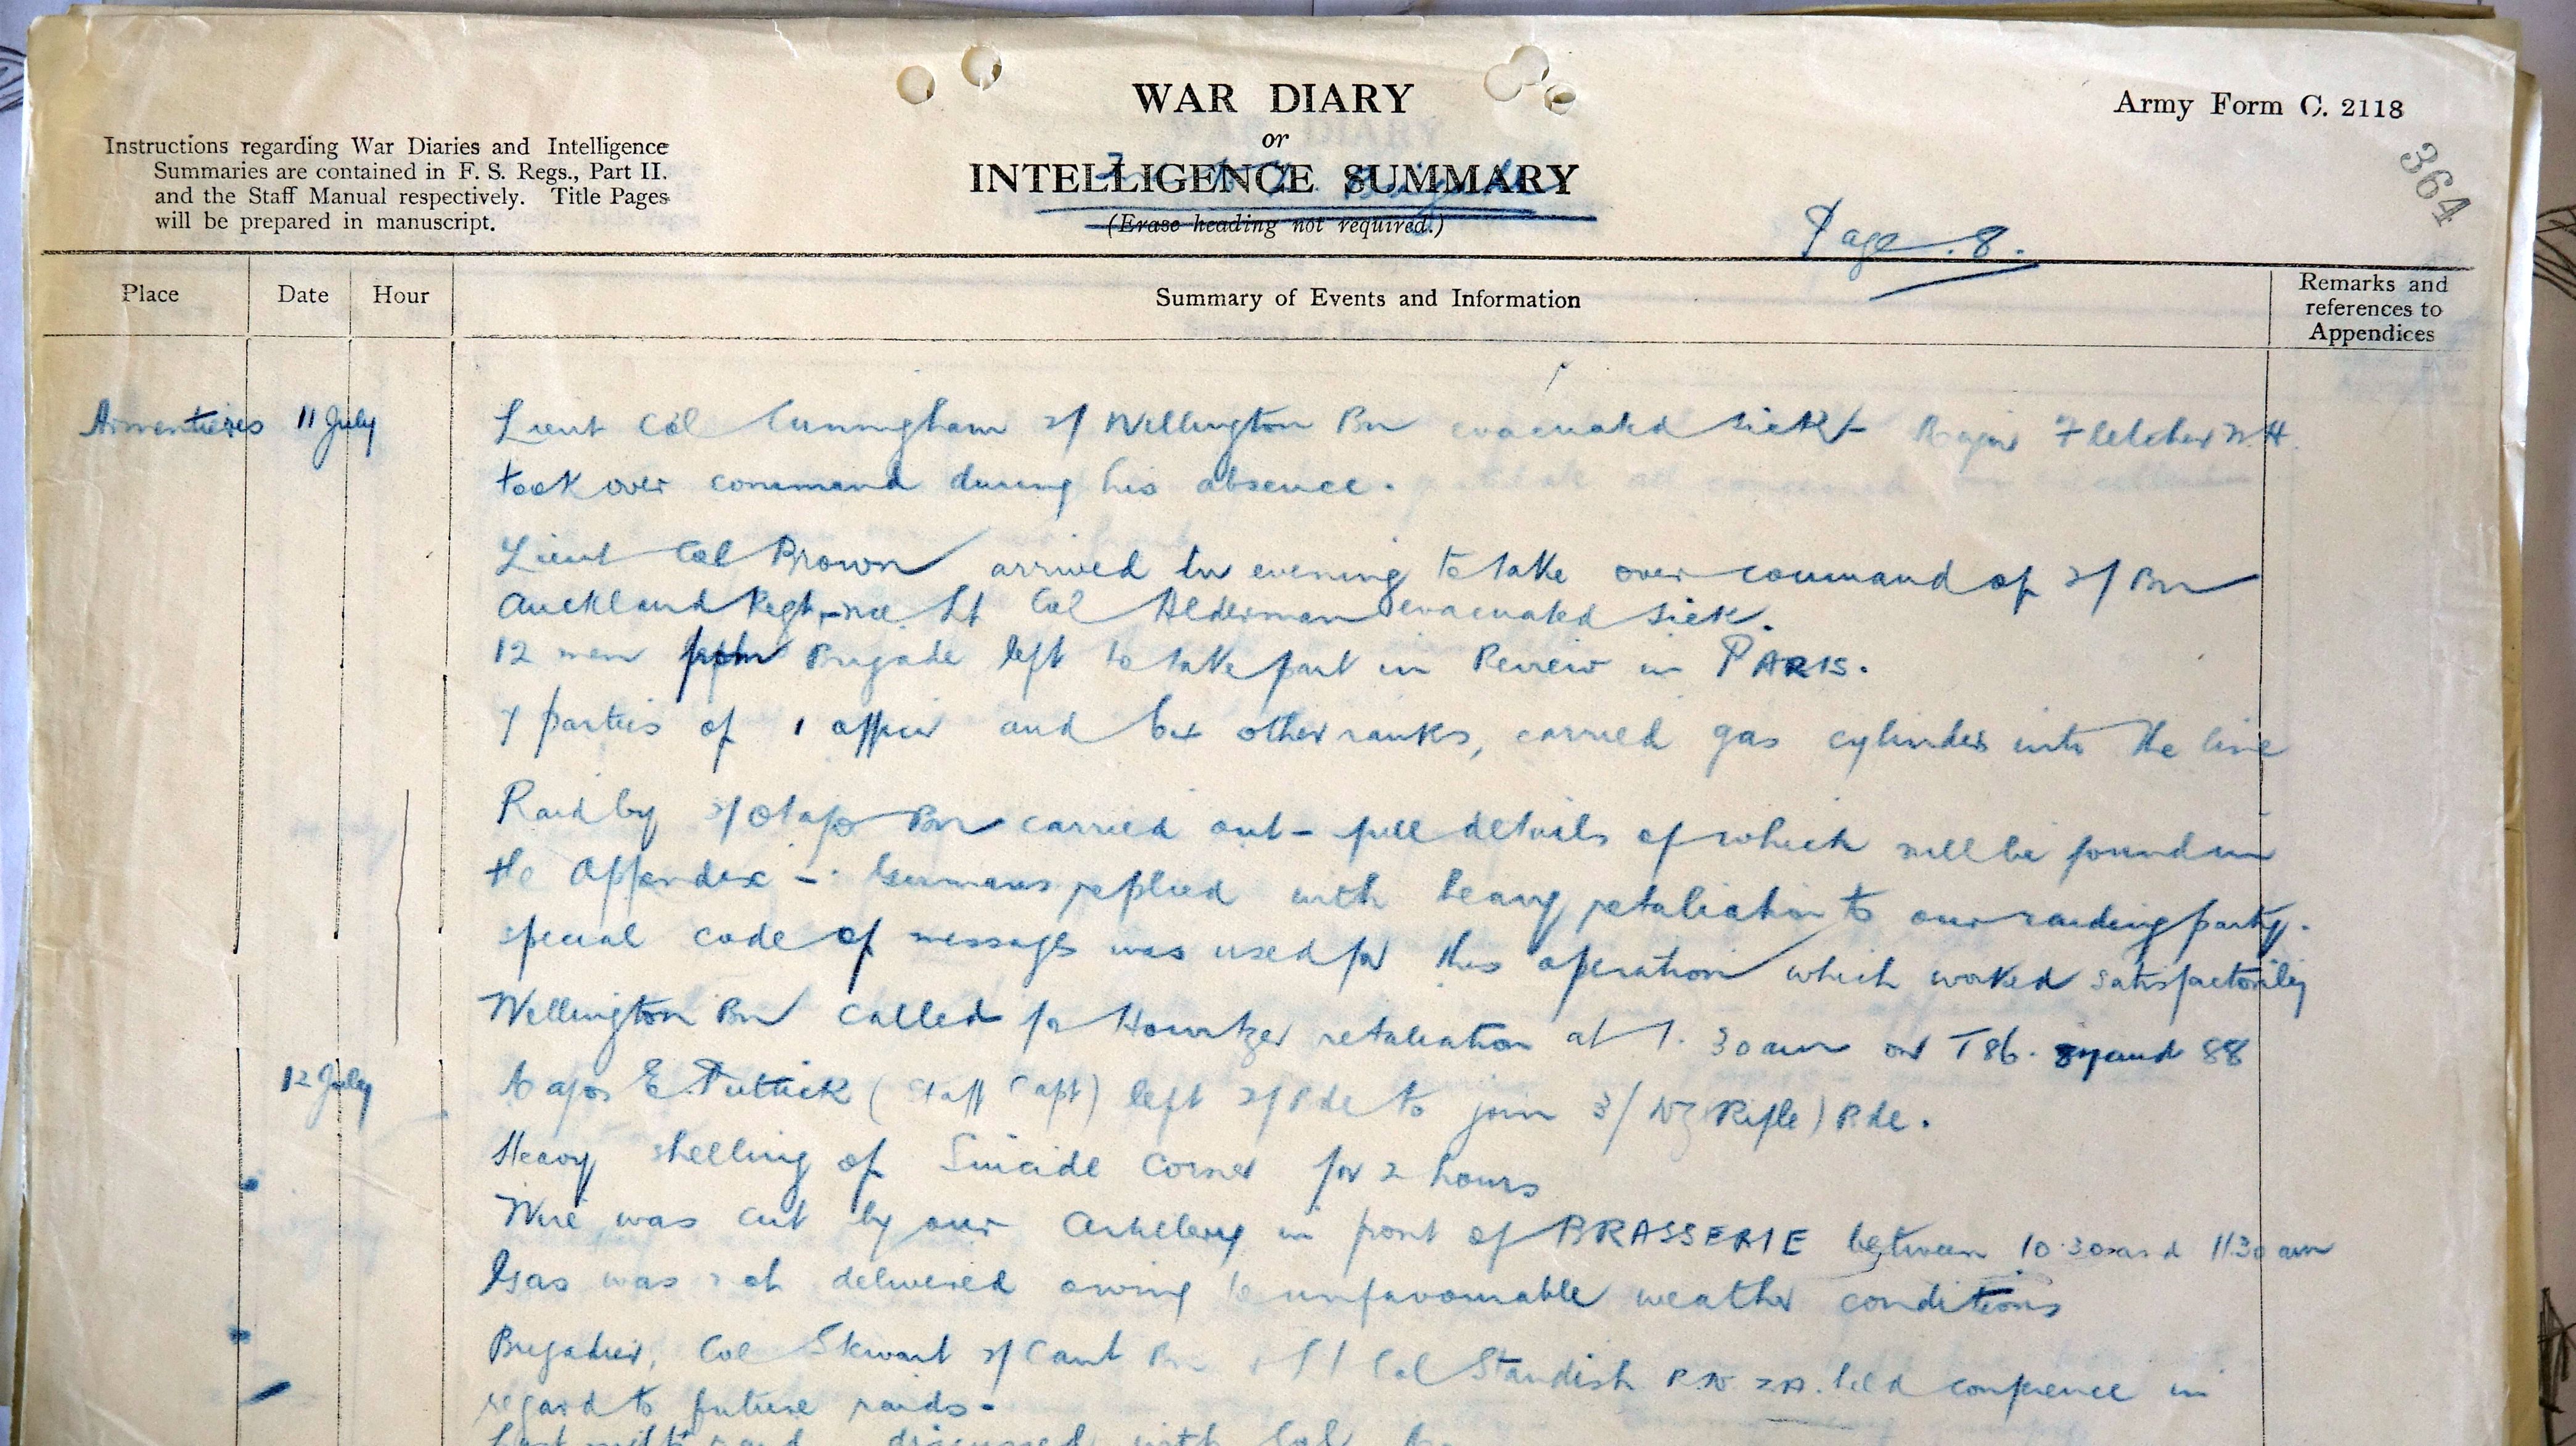 WAR DIARY
or
INTELLIGENCE SUMMARY
(Erase heading not required.)
Army Form C. 2118
364
Instructions regarding War Diaries and Intelligence
Summaries are contained in F. S. Regs., Part II.
and the Staff Manual respectively. Title Pages
will be prepared in manuscript.
Page .8.
Place Date Hour Summary of Events and Information
Remarks and
references to
Appendices
Armentieres 11 July Lieut Col Cunningham 2/ Wellington Bn evacuated sick - Major Fletcher W.H.
took over command during his absence.
Lieut Col Brown arrived in evening to take over command of 2/ Bn
Auckland Regt, vice Lt Col Alderman evacuated sick.
12 men from Brigade left to take part in Review in PARIS.
7 parties of 1 officer and 64 other ranks, carried gas cylinders into the line
Raid by 2/ Otago Bn carried out - full details of which will be found in
the Appendix - Germans replied with heavy retaliation to our raiding party.
special code of messages was used for this operation which worked satisfactorily
Wellington Bn called for Howitzer retaliation at 1.30 am on T 86. 87 and 88
12 July Major E. Puttick (Staff Capt) left 2/ Bde to join 3/ NZ (Rifle) Bde.
Heavy shelling of Suicide Corner for 2 hours
Wire was cut by our Artillery in front of BRASSERIE between 10.30 and 11.30 am
Gas was not delivered owing to unfavourable weather conditions
Brigadier, Col Stewart 2/ Cant Bn Lt Col Standish held conference in
regard to future raids.
discussed with Col